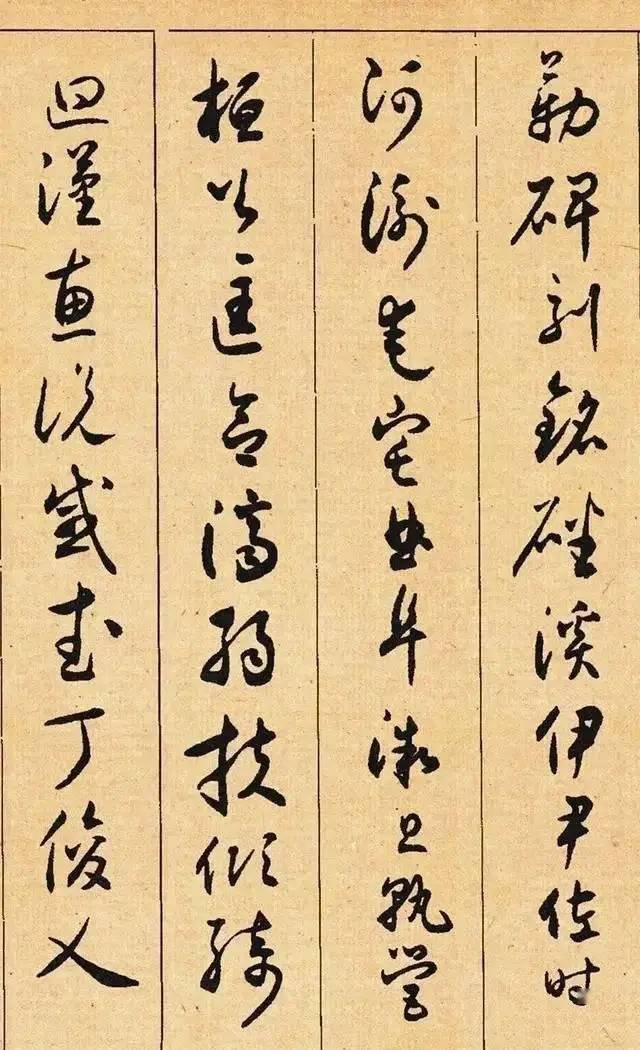 勒碑刻銘磻溪伊尹佐时
阿衡奄宅曲阜微旦孰営
桓公匡合濟弱扶傾綺
迴漢惠说感武丁俊乂